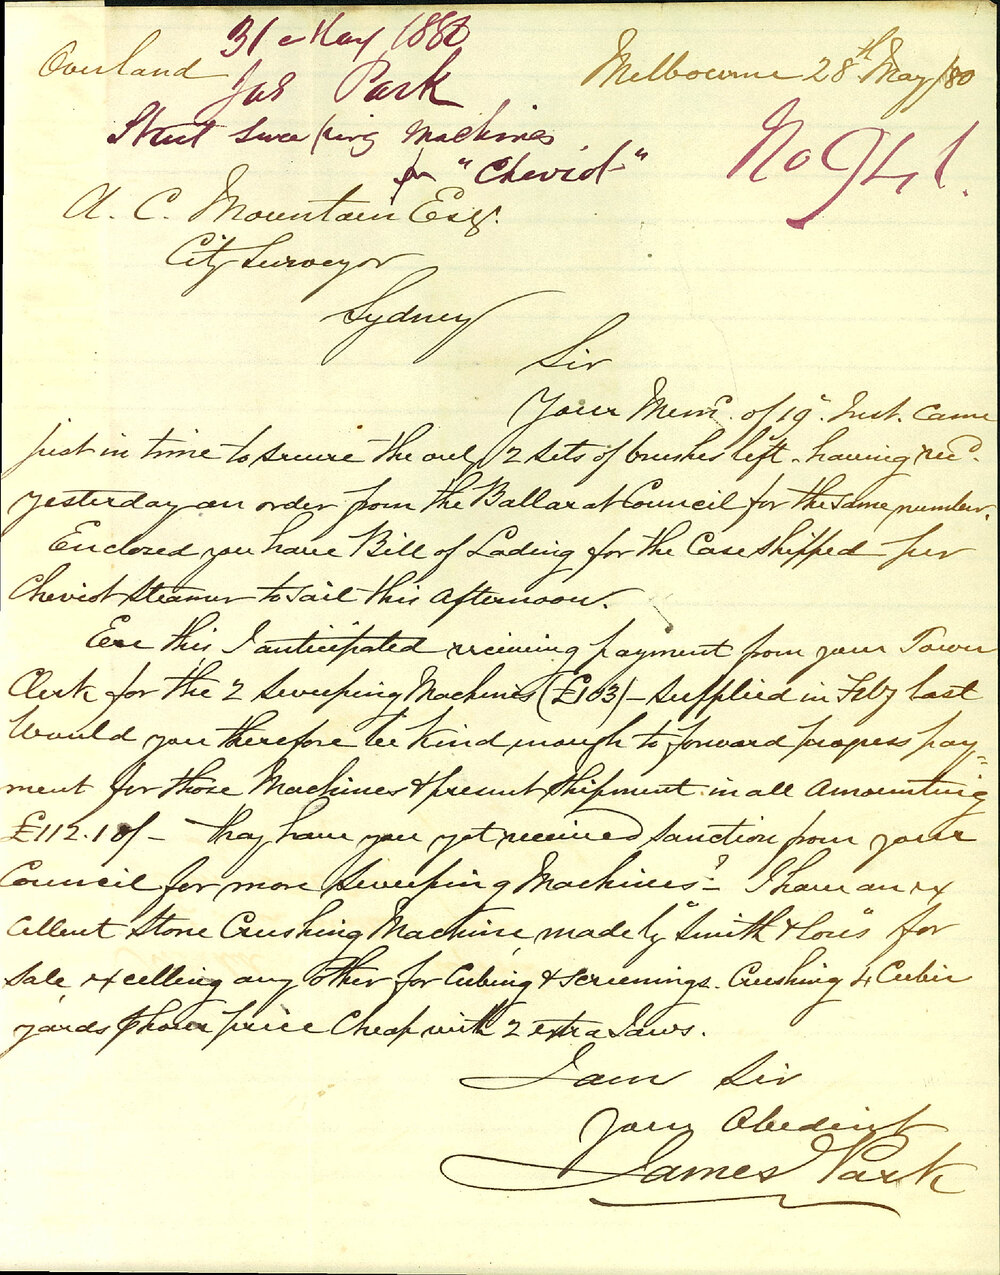 31 May 1880
Overland
Melbourne 28th May/80
Jas Park
Street Sweeping Machines
for "Cheviot"
No 941.
A. C. Mountain Esq.
City Surveyor
Sydney
Sir
Your Mem. of 19". Inst. came
just in time to secure the only 2 sets of brushes left - having recd.
yesterday an order from the Ballarat Council for the same number.
Enclosed you have Bill of Lading for the Case shipped per
Cheviot steamer to sail this afternoon.
Ere this I anticipated receiving payment from your Town
Clerk for the 2 Sweeping Machines (£103/- supplied in Feby last
Would you therefore be kind enough to forward progress pay=
ment for those Machines & present shipment in all amounting
£112.10/- May have you yet received sanction from your
Council for more Sweeping Machines? - I have an ex
cellent Stone Crushing Machine, made by "Smith & Sons" for
sale, excelling any other for Cubing & screenings. Crushing 4 Cubic
yards hour price Cheap with 2 extra Jaws.
I am Sir
Yours Obedient
James Park